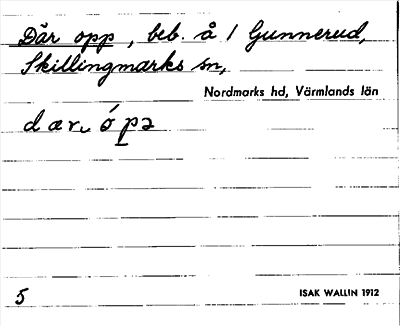 Där opp, beb. å 1 Gunnerud,
Skillingmarks sn,
Nordmarks hd, Värmlands län
dær ópə
5
ISAK WALLIN 1912